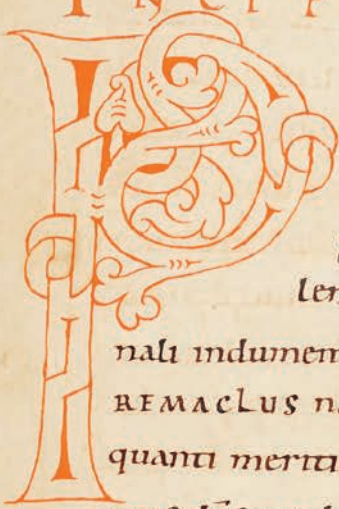 INCIP
P
len
nali indumen
REMACLUS n
quanti meriti